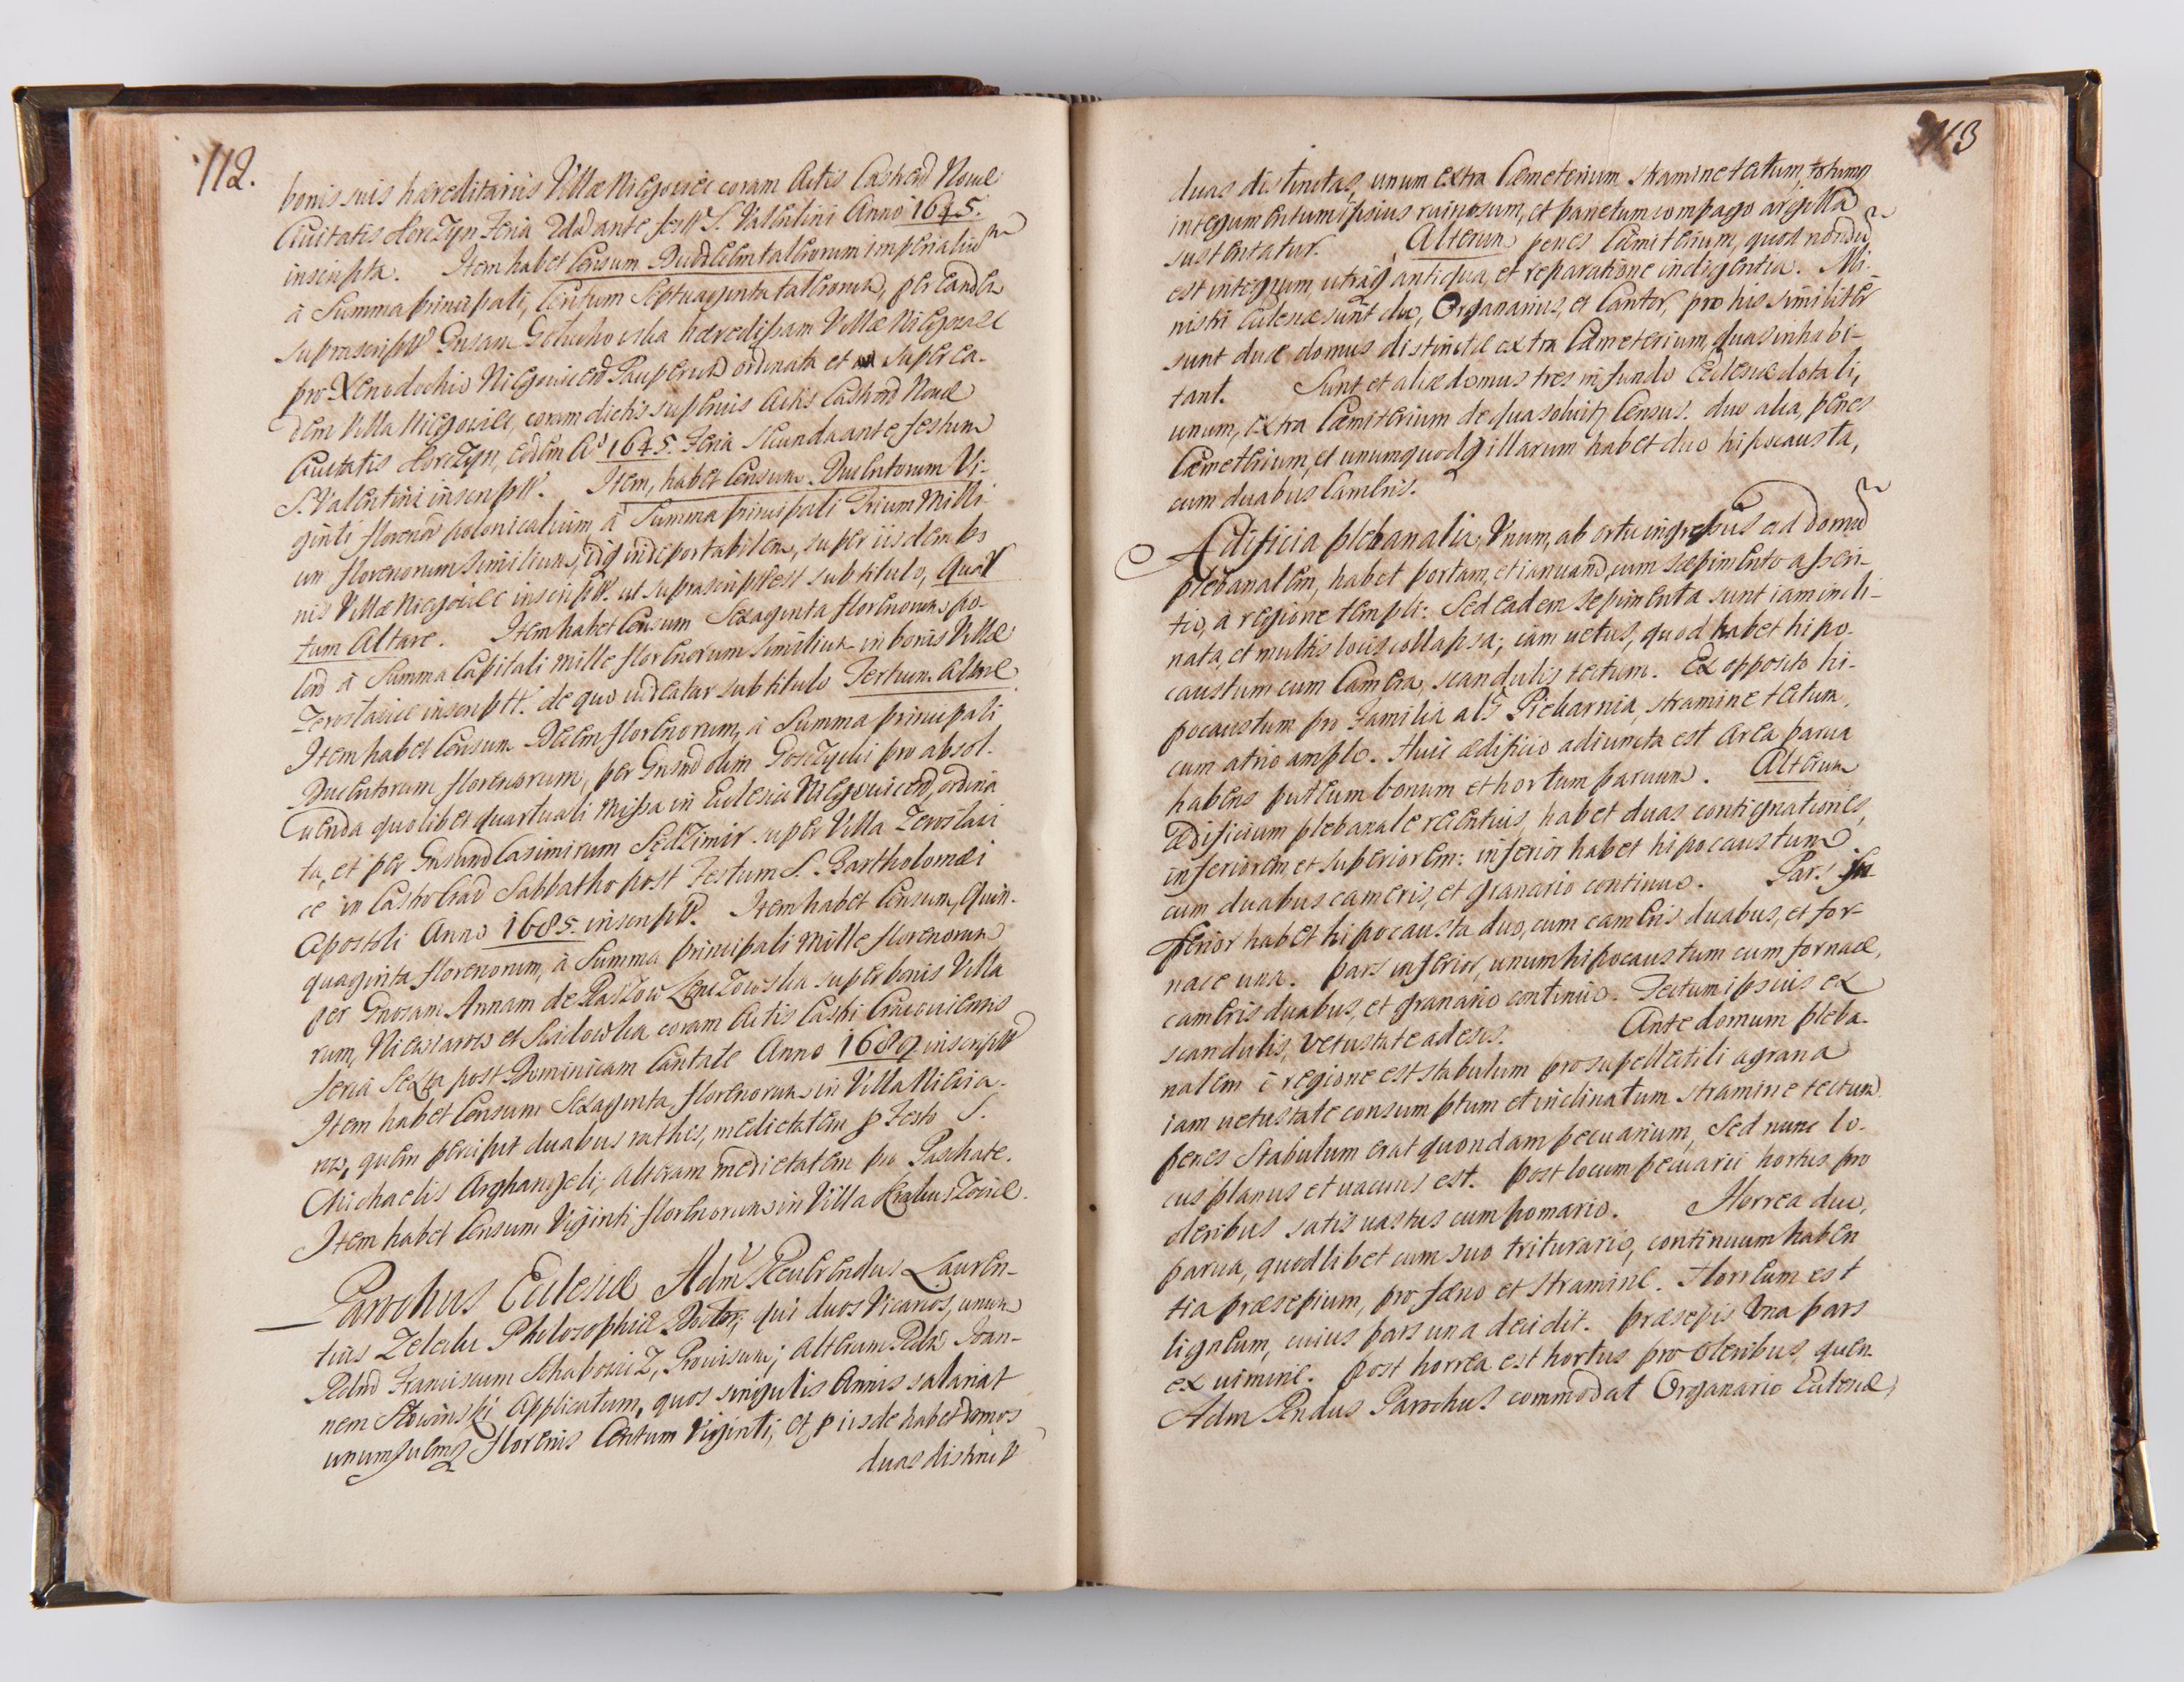 112.
bonis suis hæreditariis Villæ Niegoviec coram Actis Castren Novæ
Civitatis Korczyn Feria 2da ante festū S. Valentini Anno 1645.
inscripta. Item habet Censum Duodecim talerorum imperialiū
à Summa principali, Centum Septuaginta talerorum, per eandem
suprascriptā Gnsam Goluchowska hæredissam Villæ Niegoviec
pro Xenodochio Niegovicen Pauperum ordinata et super ea-
dem Villa Niegoviec, coram dictis superius Actis Castren Novæ
Civitatis Korczyn, eodem Ao 1645. Feria Secunda ante festum
S. Valentini inscriptā. Item, habet Censum Ducentorum Vi-
ginti florenor polonicalium à Summa principali Trium Milli
um florenorum similium, idq inde portabilem, super iisdem bo
nis Villæ Niegoviec inscriptā. ut suprascriptū est sub titulo, Quar
tum Altare. Item habet Censum Sexaginta florenorum po-
lon à Summa Capitali mille florenorum similium in bonis Villæ
Zerosławice inscriptā. de quo videatur sub titulo Tertium Altare
Item habet Censum Decem florenorum, à Summa principali
Ducentorum florenorum, per Gnsnd olim Goszycki pro absol-
venda quolibet quartuali Missa in Ecclesia Niegovicen, ordina
ta, et per Gnsund Casimirum Sędzimir super Villa Zerosławi
ce in Castro Crac Sabbatho post Festum S. Bartholomæi
Apostoli Anno 1685. inscriptā. Item habet Censum, Quin-
quaginta florenorum, à Summa principali Mille florenorum
per Gnosam Annam de Raszow super bonis Villa
rum, et coram Actis Castri Cracoviensis
feria Sexta post Dominicam Cantate Anno 1689 inscriptā
Item habet Censum Sexaginta florenorum in Villa
quem percipit duabus rathis, medietatem p Festo S.
Michaelis Arghangeli; alteram medietatem pro Paschate.
Item habet Censum Viginti florenorum in Villa
Parochus Ecclesiæ Admū Reverendus Lauren-
tius Philosophiæ Doctor, qui duos Vicarios, unum
Rdnd Franciscum Provisum; alterum Rdn Ioan-
nem Applicatum, quos singulis Annis salariat
unumquemq florenis Centum Viginti, et p iisde habet domos
duas distinctā
113
duas distinctas, unum extra Cæmeterium stramine tectum, totumq
integumentum ipsius ruinosum, et parietum compago argilla
sustentatur. Alterum penes Cæmiterium, quod nondū
est integrum utraq antiqua, et reparatione indigentia. Mi-
nistri Ecclesiæ sunt duo, Organarius, et Cantor, pro his similiter
sunt duæ domus distinctæ extra Cæmeterium, quas inhabi-
tant. Sunt et aliæ domus tres in fundo Ecclesiæ dotali,
unum, extra Cæmiterium de qua solvitr Census. duo alia, penes
Cæmeterium, et unumquodq illarum habet duo hipocausta,
cum duabus Cameris.
Ædificia plebanalia, Vnum, ab ortu ingressus ad domū
plebanalem, habet portam, et ianuam, cum sæpimento asseri-
tio, à regione templi: Sed eadem sepimenta sunt iam incli-
nata, et multis locis collapsa; iam vetus, quod habet hipo-
caustum cum Camera, scandulis tectum. Ex opposito hi-
pocaustum pro Familia als Piekarnia, stramine tectum,
cum atrio amplo. Huic ædificio adiuncta est Area parva
habens puteum bonum et hortum parvum. Alterum
Ædificium plebanale recentius, habet duas contignationes,
inferiorem, et superiorem: inferior habet hipocaustum
cum duabus cameris, et granario continuo. Pars Su
perior habet hipocausta duo, cum cameris duabus, et for-
nace una. Pars inferior, unum hipocaustum cum fornace,
cameris duabus, et granario continuo. Tectum ipsius ex
scandulis, vetustate adesis. Ante domum pleba-
nalem è regione est stabulum pro supellectili agraria
iam vetustate consumptum et inclinatum stramine tectum
penes Stabulum erat quondam pecuarium, Sed nunc lo-
cus planus et vacuus est. post locum pecuarii hortus pro
oleribus satis vastus cum pomario. Horrea duo,
parva, quodlibet cum suo triturario, continuum haben
tia præsepium, pro fæno et stramine. Horreum est
ligneum, cuius pars una decidit. præsepis Vna pars
ex vimine. Post horrea est hortus pro oleribus, quem
Adm Rndus Parochus commodat Organario Ecclesiæ,